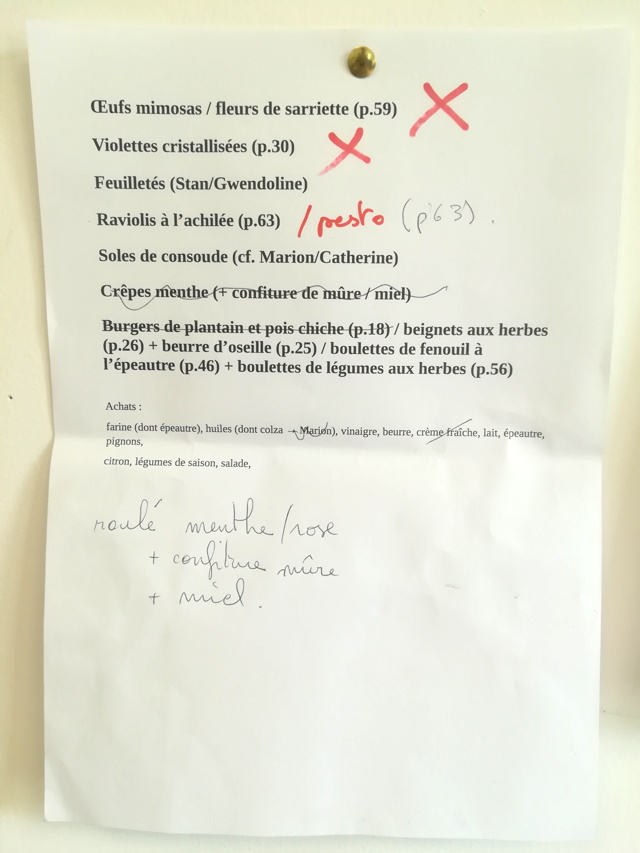 Œufs mimosas / fleurs de sarriette (p.59)
Violettes cristallisées (p.30)
Feuilletés (Stan/Gwendoline)
Raviolis à l'achilée (p.63) / pesto (p63).
Soles de consoude (cf. Marion/Catherine)
Crêpes menthe (+ confiture de mûre / miel)
Burgers de plantain et pois chiche (p.18) / beignets aux herbes
(p.26) + beurre d'oseille (p.25) / boulettes de fenouil à
l'épeautre (p.46) + boulettes de légumes aux herbes (p.56)
Achats :
farine (dont épeautre), huiles (dont colza → Marion), vinaigre, beurre, crème fraîche, lait, épeautre,
pignons,
citron, légumes de saison, salade,
roulé menthe/rose
+ confiture mûre
+ miel.